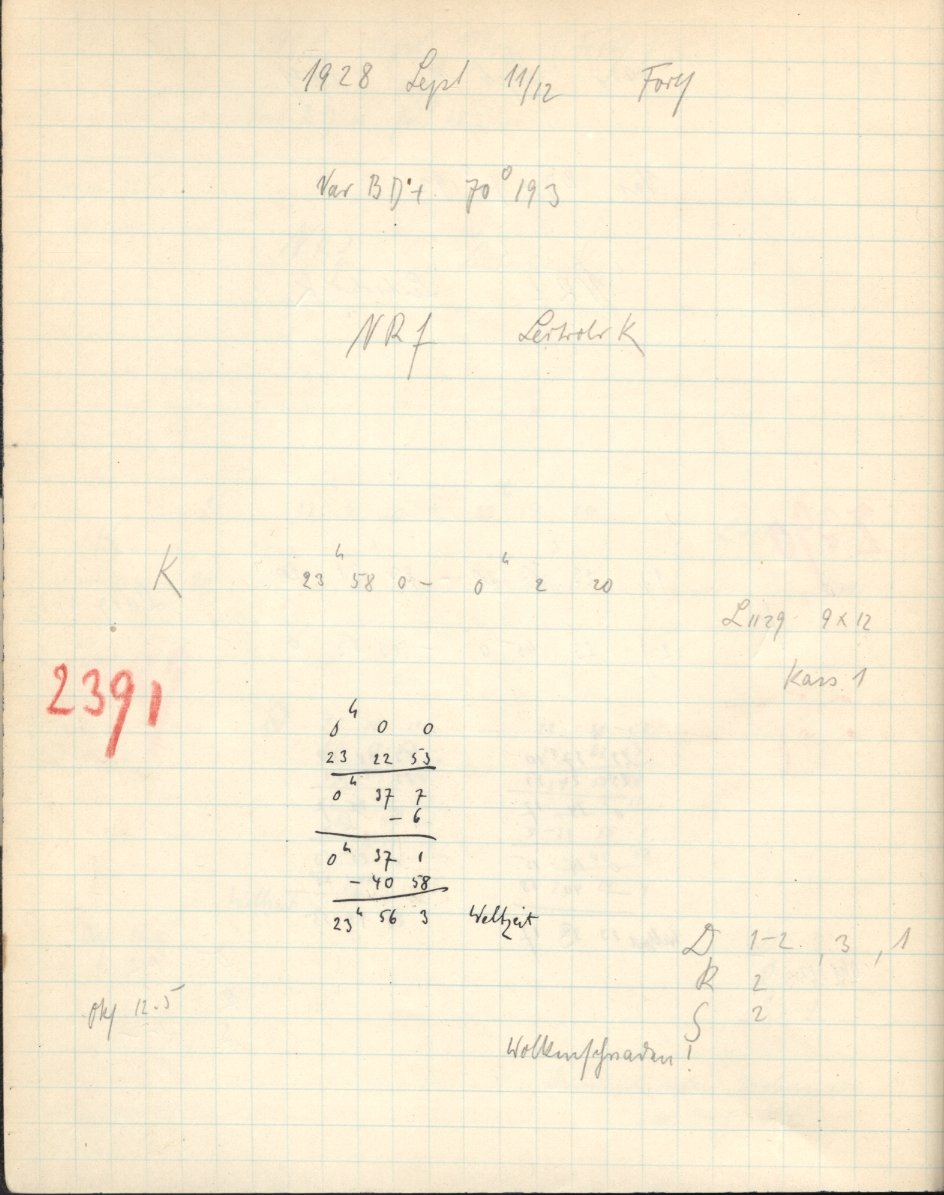 1928 Sept 11/12
Var BD + 70° 193
NR 1 Leitrohr K
K 23ʰ 58 0 – 0ʰ 2 20
L 1129 9 x 12
Kass 1
2391
0ʰ 0 0
23 22 53
0ʰ 37 7
– 6
0ʰ 37 1
– 40 58
23ʰ 56 3 Weltzeit
D 1–2, 3, 1
R 2
S 2
12.5
Wolkenschwaden!